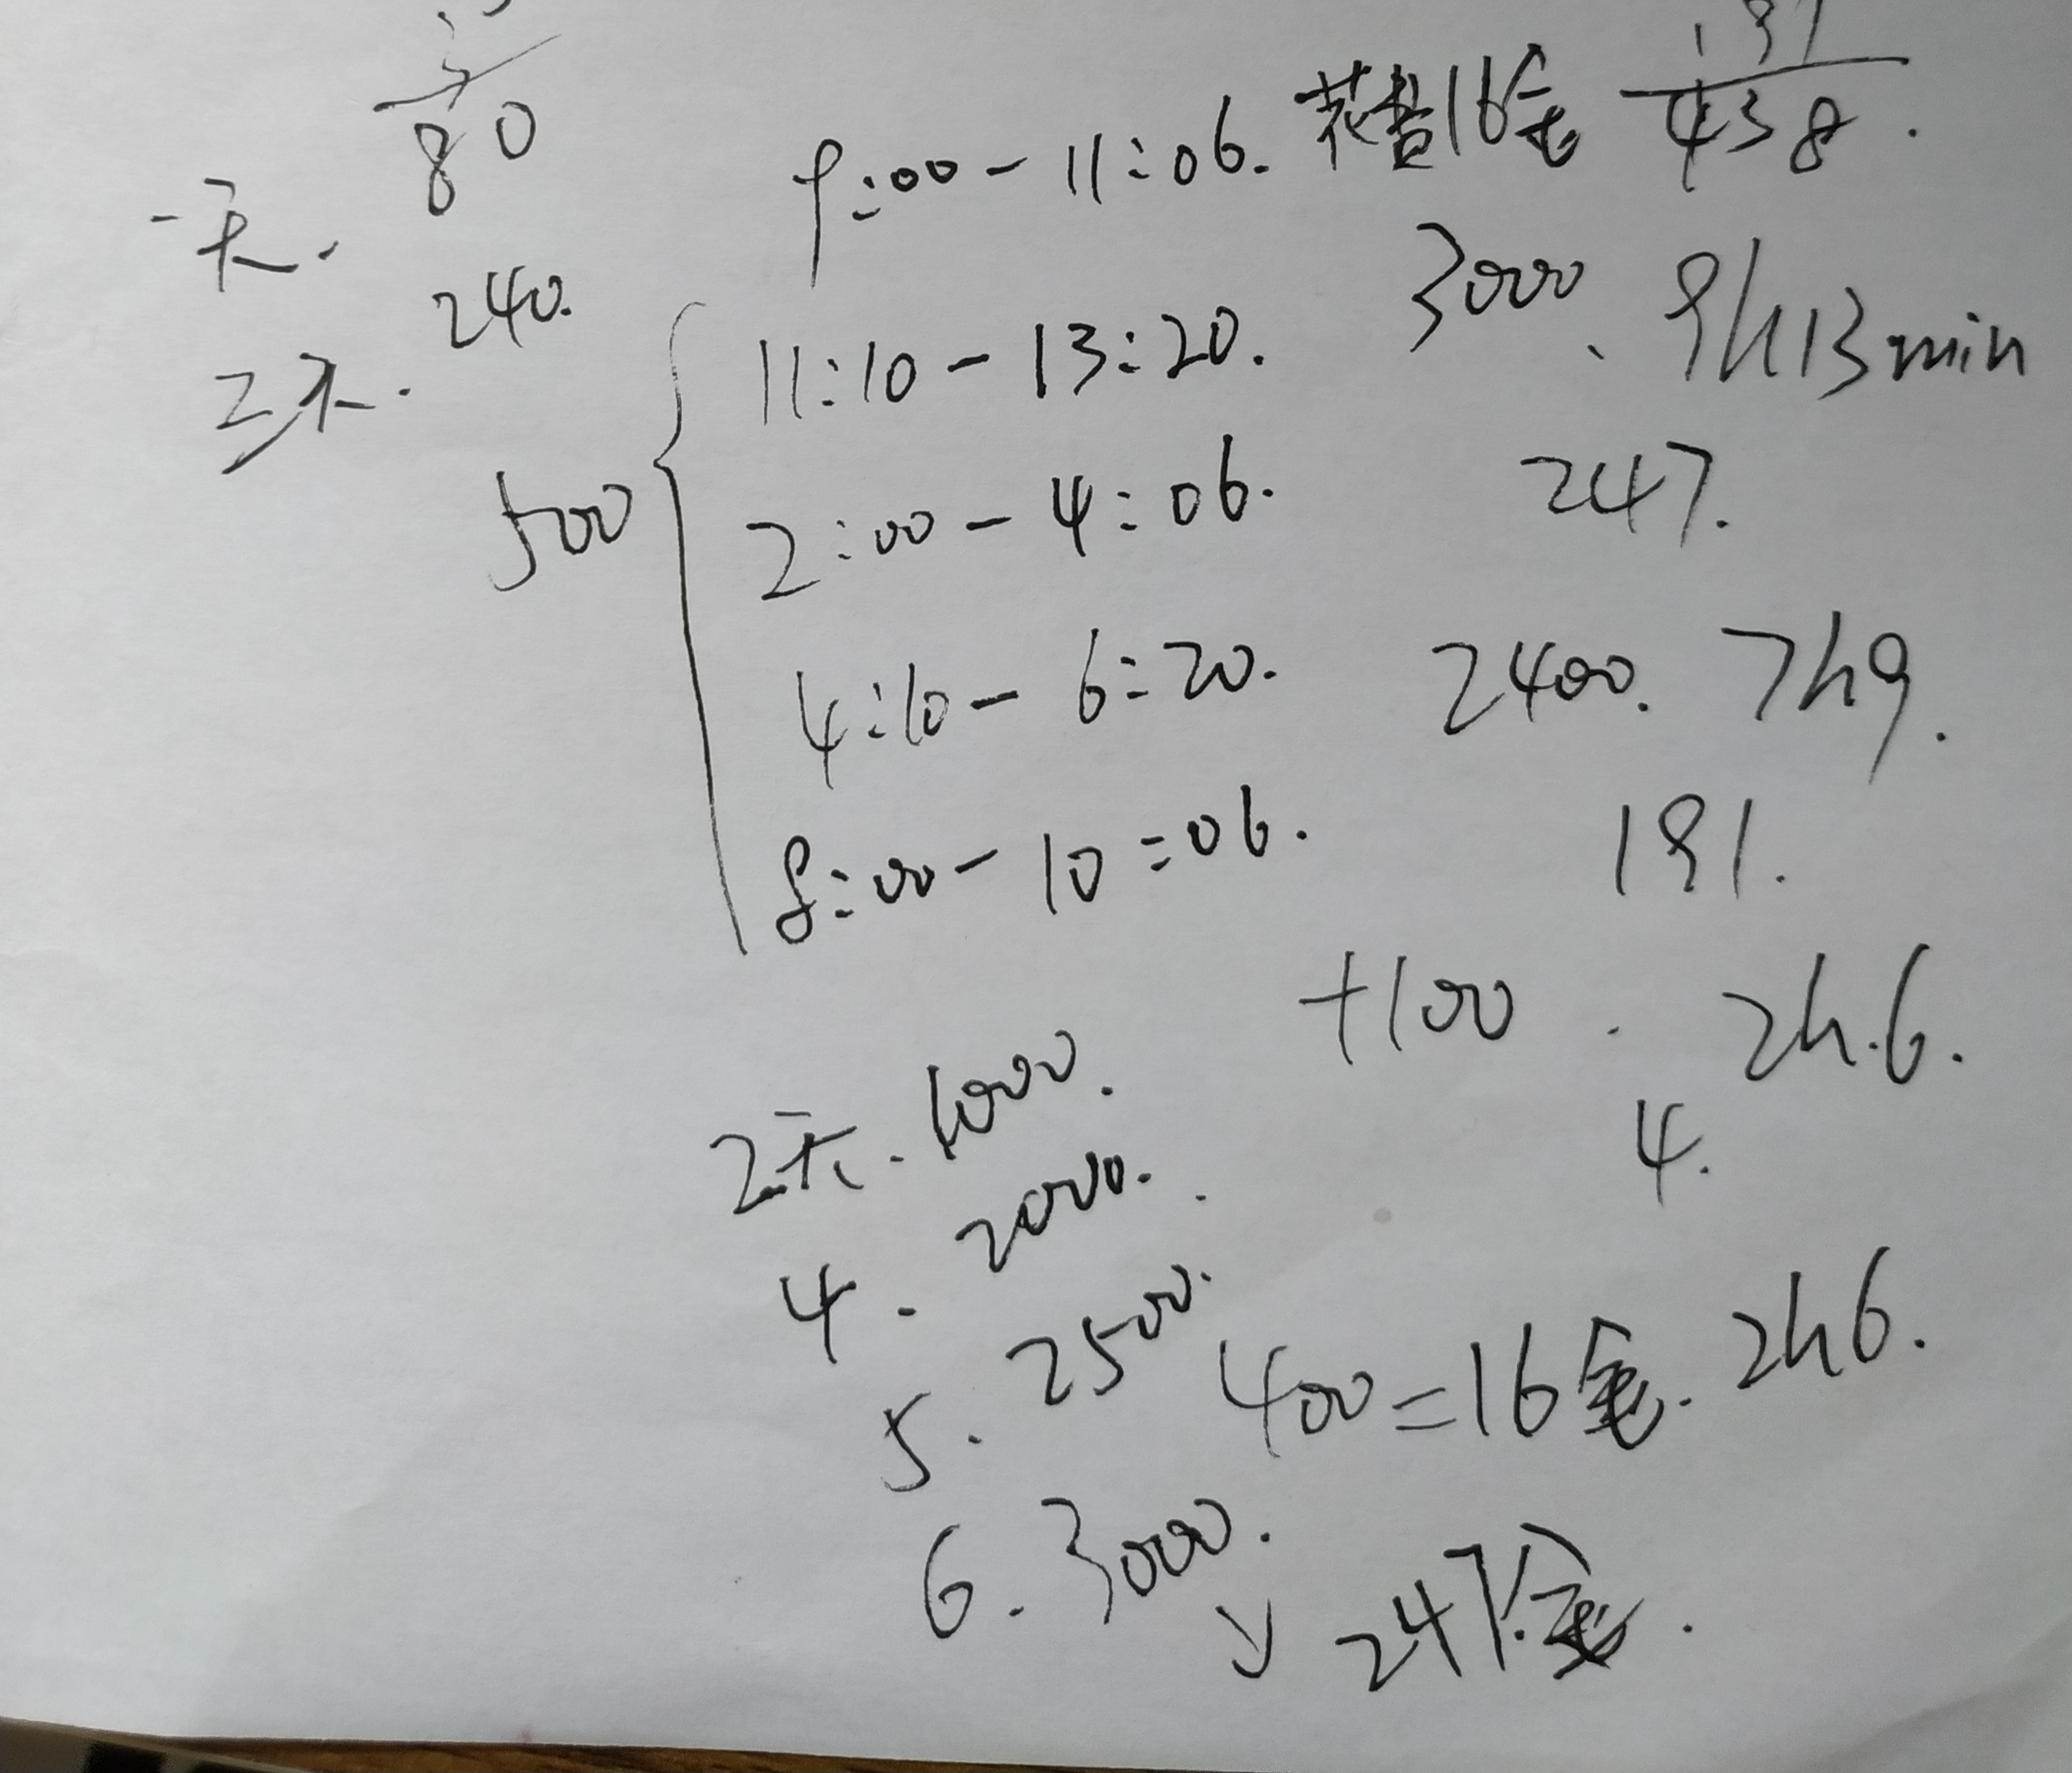 80
一天.
240.
三天.
9:00 - 11:06. 花费16金
191
438.
500
11:10 - 13:20.
2:00 - 4:06.
4:10 - 6:20.
8:00 - 10:06.
3000、9h13min
247.
2400. 7h9.
191.
+100. 2h.6.
4.
2天. 1000.
4. 2000.
5. 2500.
6. 3000.
400=16金. 2h6.
247金.